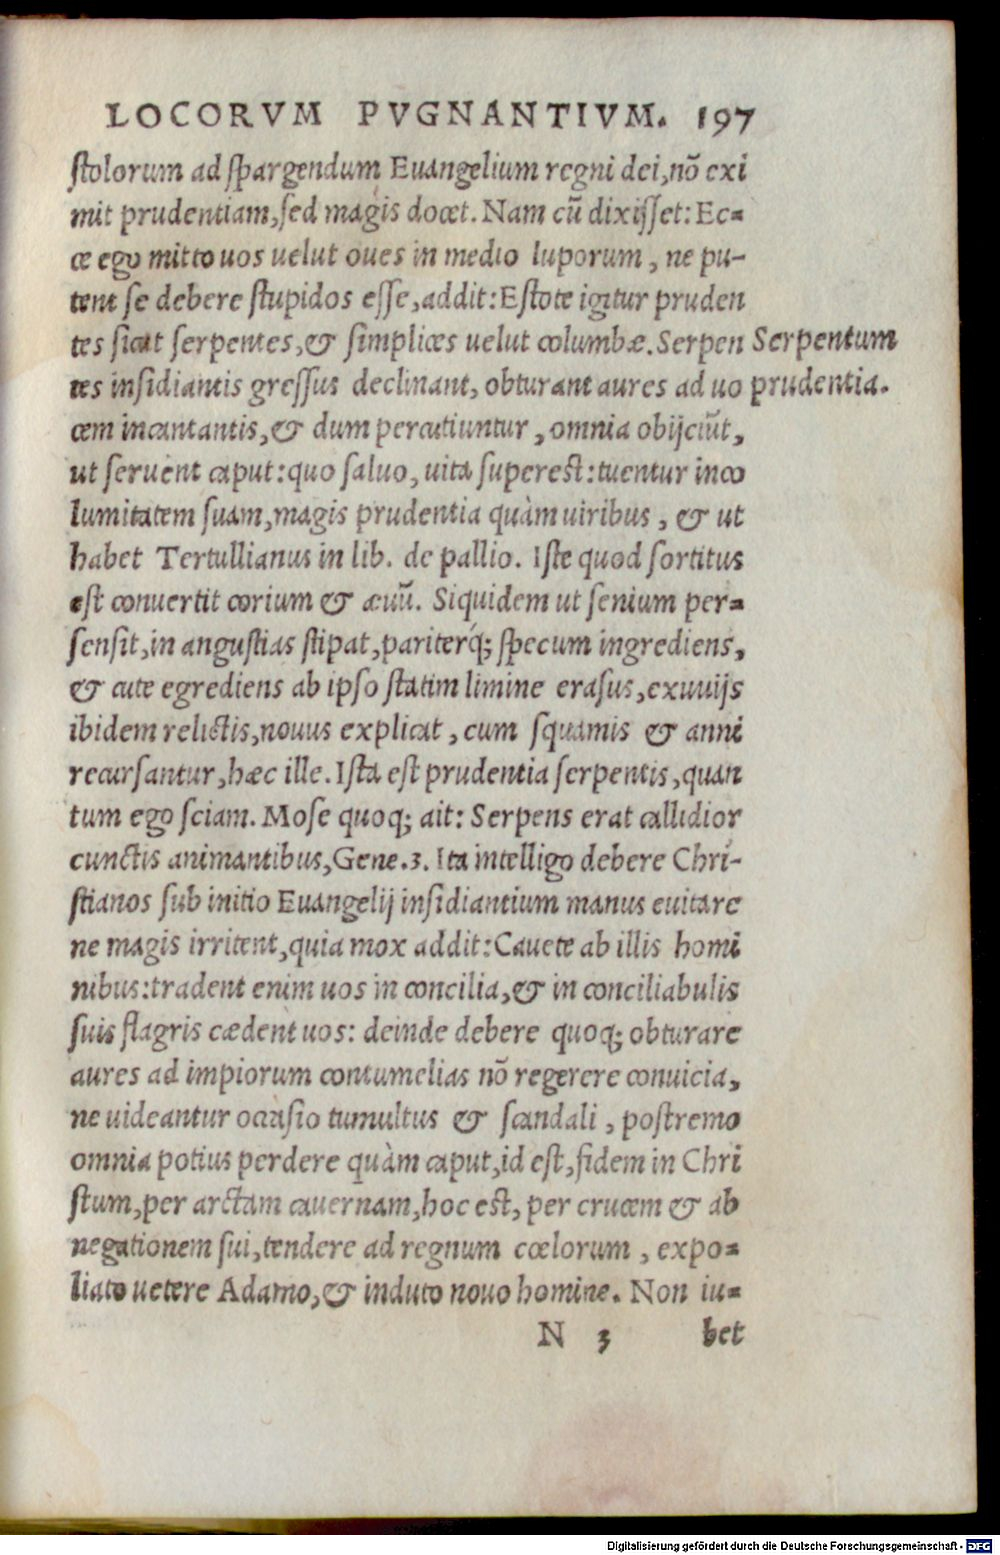 LOCORVM PVGNANTIVM. 197
stolorum ad spargendum Euangelium regni dei, nõ exi
mit prudentiam, sed magis docet. Nam cũ dixisset: Ec-
ce ego mitto uos uelut oues in medio luporum, ne pu-
tent se debere stupidos esse, addit: Estote igitur pruden
tes sicut serpentes, & simplices uelut columbæ. Serpen
Serpentum
tes insidiantis gressus declinant, obturant aures ad uo
prudentia.
cem incantantis, & dum percutiuntur, omnia obijciũt,
ut seruent caput: quo saluo, uita superest: tuentur inco
lumitatem suam, magis prudentia quàm uiribus, & ut
habet Tertullianus in lib. de pallio. Iste quod sortitus
est conuertit corium & æuũ. Siquidem ut senium per-
sensit, in angustias stipat, pariterq́; specum ingrediens,
& cute egrediens ab ipso statim limine erasus, exuuijs
ibidem relictis, nouus explicat, cum squamis & anni
recursantur, hæc ille. Ista est prudentia serpentis, quan
tum ego sciam. Mose quoq; ait: Serpens erat callidior
cunctis animantibus, Gene. 3. Ita intelligo debere Chri-
stianos sub initio Euangelij insidiantium manus euitare
ne magis irritent, quia mox addit: Cauete ab illis homi
nibus: tradent enim uos in concilia, & in conciliabulis
suis flagris cædent uos: deinde debere quoq; obturare
aures ad impiorum contumelias nõ regerere conuicia,
ne uideantur occasio tumultus & scandali, postremo
omnia potius perdere quàm caput, id est, fidem in Chri
stum, per arctam cauernam, hoc est, per crucem & ab
negationem sui, tendere ad regnum cœlorum, expo-
liato uetere Adamo, & induto nouo homine. Non iu-
N 3 bet
Digitalisierung gefördert durch die Deutsche Forschungsgemeinschaft - DFG